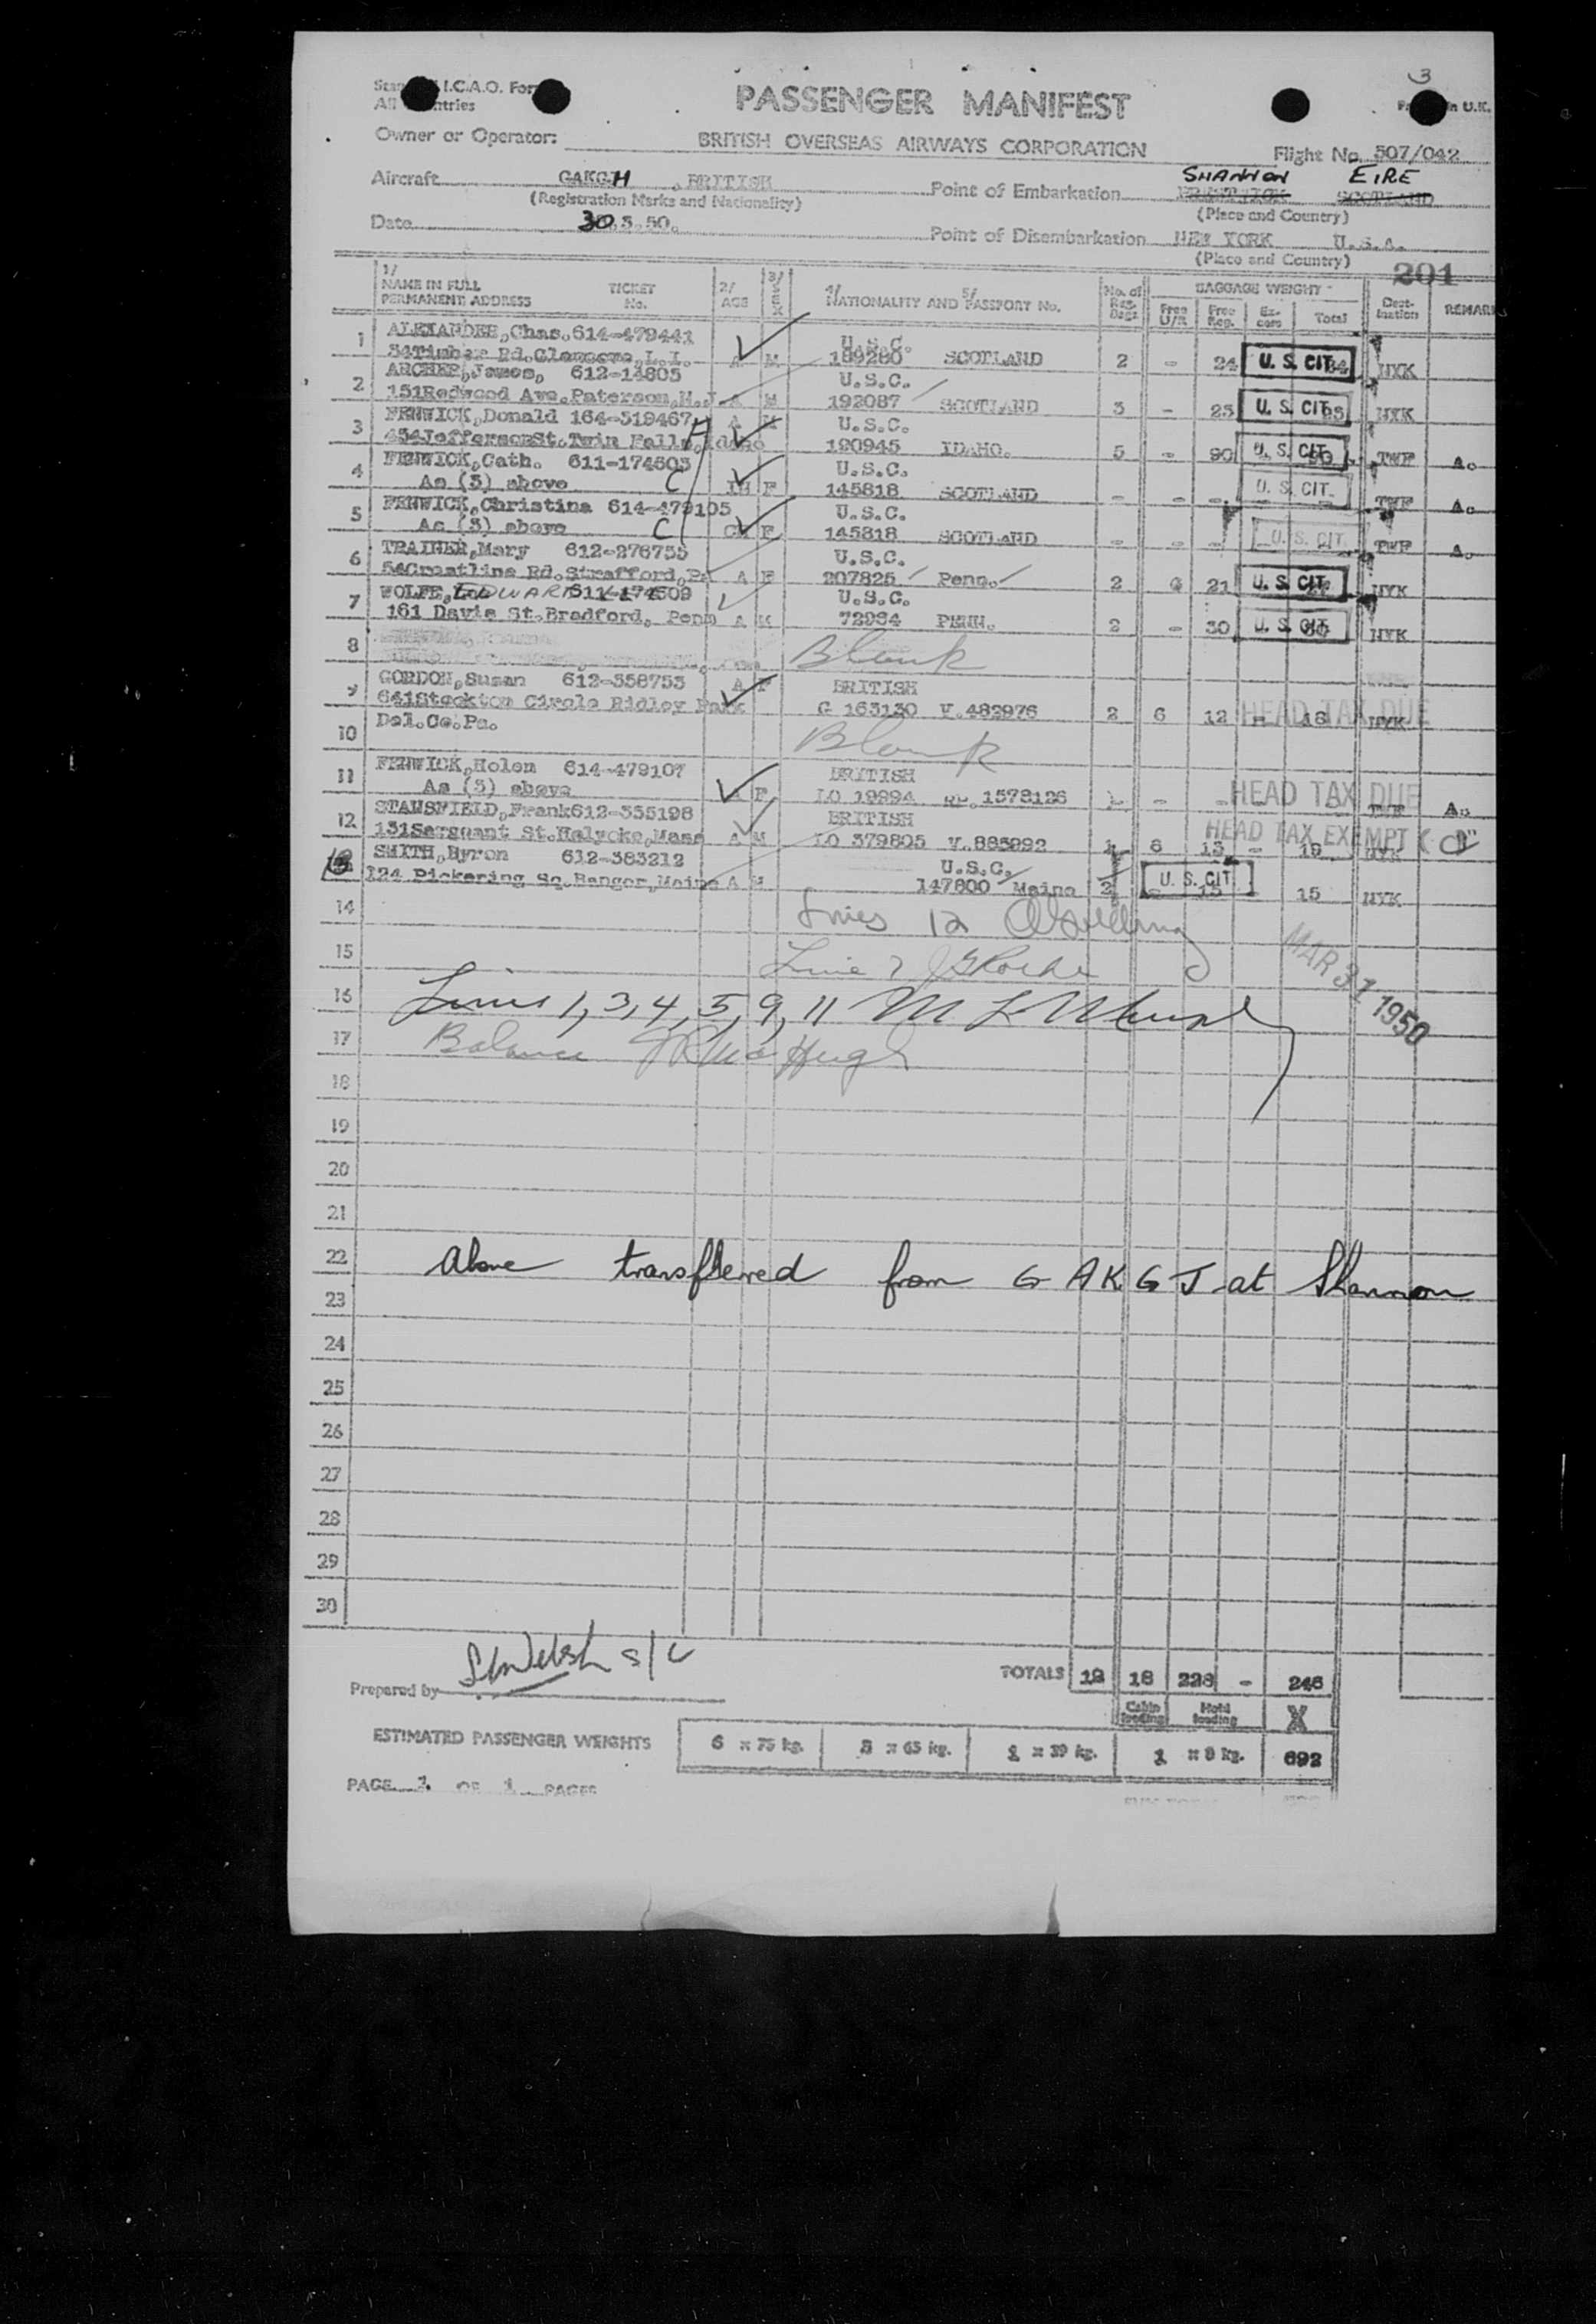 3
I.C.A.O.
All
in U.K.
PASSENGER MANIFEST
Owner or Operator: BRITISH OVERSEAS AIRWAYS CORPORATION Flight No. 507/042
Aircraft GAKGH, BRITISH Point of Embarkation SHANNON EIRE PRESTWICK SCOTLAND
(Registration Marks and Nationality) (Place and Country)
Date 30.3.50. Point of Disembarkation NEW YORK U.S.A.
(Place and Country)
201
1/ NAME IN FULL PERMANENT ADDRESS TICKET No. 2/ AGE 3/ SEX 4/ NATIONALITY AND 5/ PASSPORT No. No. of Reg. Bags BAGGAGE WEIGHT Free U/R Free Reg. Ex-cess Total Dest-ination REMARKS
1 ALEXANDER, Chas. 614-479441 U.S.C.
Rd. L.I. A M 189280 SCOTLAND 2 - 24 U. S. CIT. NYK
2 ARCHER, James, 612-14805 U.S.C.
151 Redwood Ave. Paterson, N.J. A M 192087 SCOTLAND 3 - 25 U. S. CIT. NYK
3 FENWICK, Donald 164-319467 A M U.S.C.
454 Jefferson St. Twin Falls, Idaho 190945 IDAHO. 5 - 90 U. S. CIT. TWF A.
4 FENWICK, Cath. 611-174603 U.S.C.
As (3) above C F 145818 SCOTLAND - - - U. S. CIT. TWF A.
5 FENWICK, Christina 614-479105 U.S.C.
As (3) above C CH F 145818 SCOTLAND - - - U. S. CIT. TWF A.
6 TRAINER, Mary 612-278755 U.S.C.
54 Crestline Rd. Strafford, Pa A F 207825 Penn. 2 21 U. S. CIT. NYK
7 WOLFE, EDWARD U.S.C.
161 Davis St. Bradford, Penn A M 72984 PENN. 2 - 30 U. S. CIT. NYK
8 Blank
9 GORDON, Susan 612-358753 A F BRITISH
641 Stockton Circle Ridley Park G 163130 V.482976 2 6 12 - 18 HEAD TAX DUE NYK
10 Del. Co. Pa. Blank
11 FENWICK, Helen 614-479107 BRITISH
As (3) above A F LO 19994 1578126 - - HEAD TAX DUE TWF A.
12 STANSFIELD, Frank 612-355198 BRITISH HEAD TAX EXEMPT
131 Sargeant St. Holyoke, Mass A M LO 379805 V.885892 1 6 13 - 19 NYK
13 SMITH, Byron 612-383212 U.S.C.
124 Pickering Sq. Bangor, Maine A M 147800 Maine 2 U. S. CIT. 15 15 NYK
14 Lines 12
15 Line 7
MAR 31 1950
16 Lines 1, 3, 4, 5, 9, 11
17 Balance
18
19
20
21
22 Above transferred from G AKGJ at Shannon
23
24
25
26
27
28
29
30
Prepared by
TOTALS 18 18 228 - 246
Cabin loading Hold loading X
ESTIMATED PASSENGER WEIGHTS 6 x 75 kg. x 65 kg. x 39 kg. 1 x 8 kg. 692
PAGE 1 OF 1 PAGES